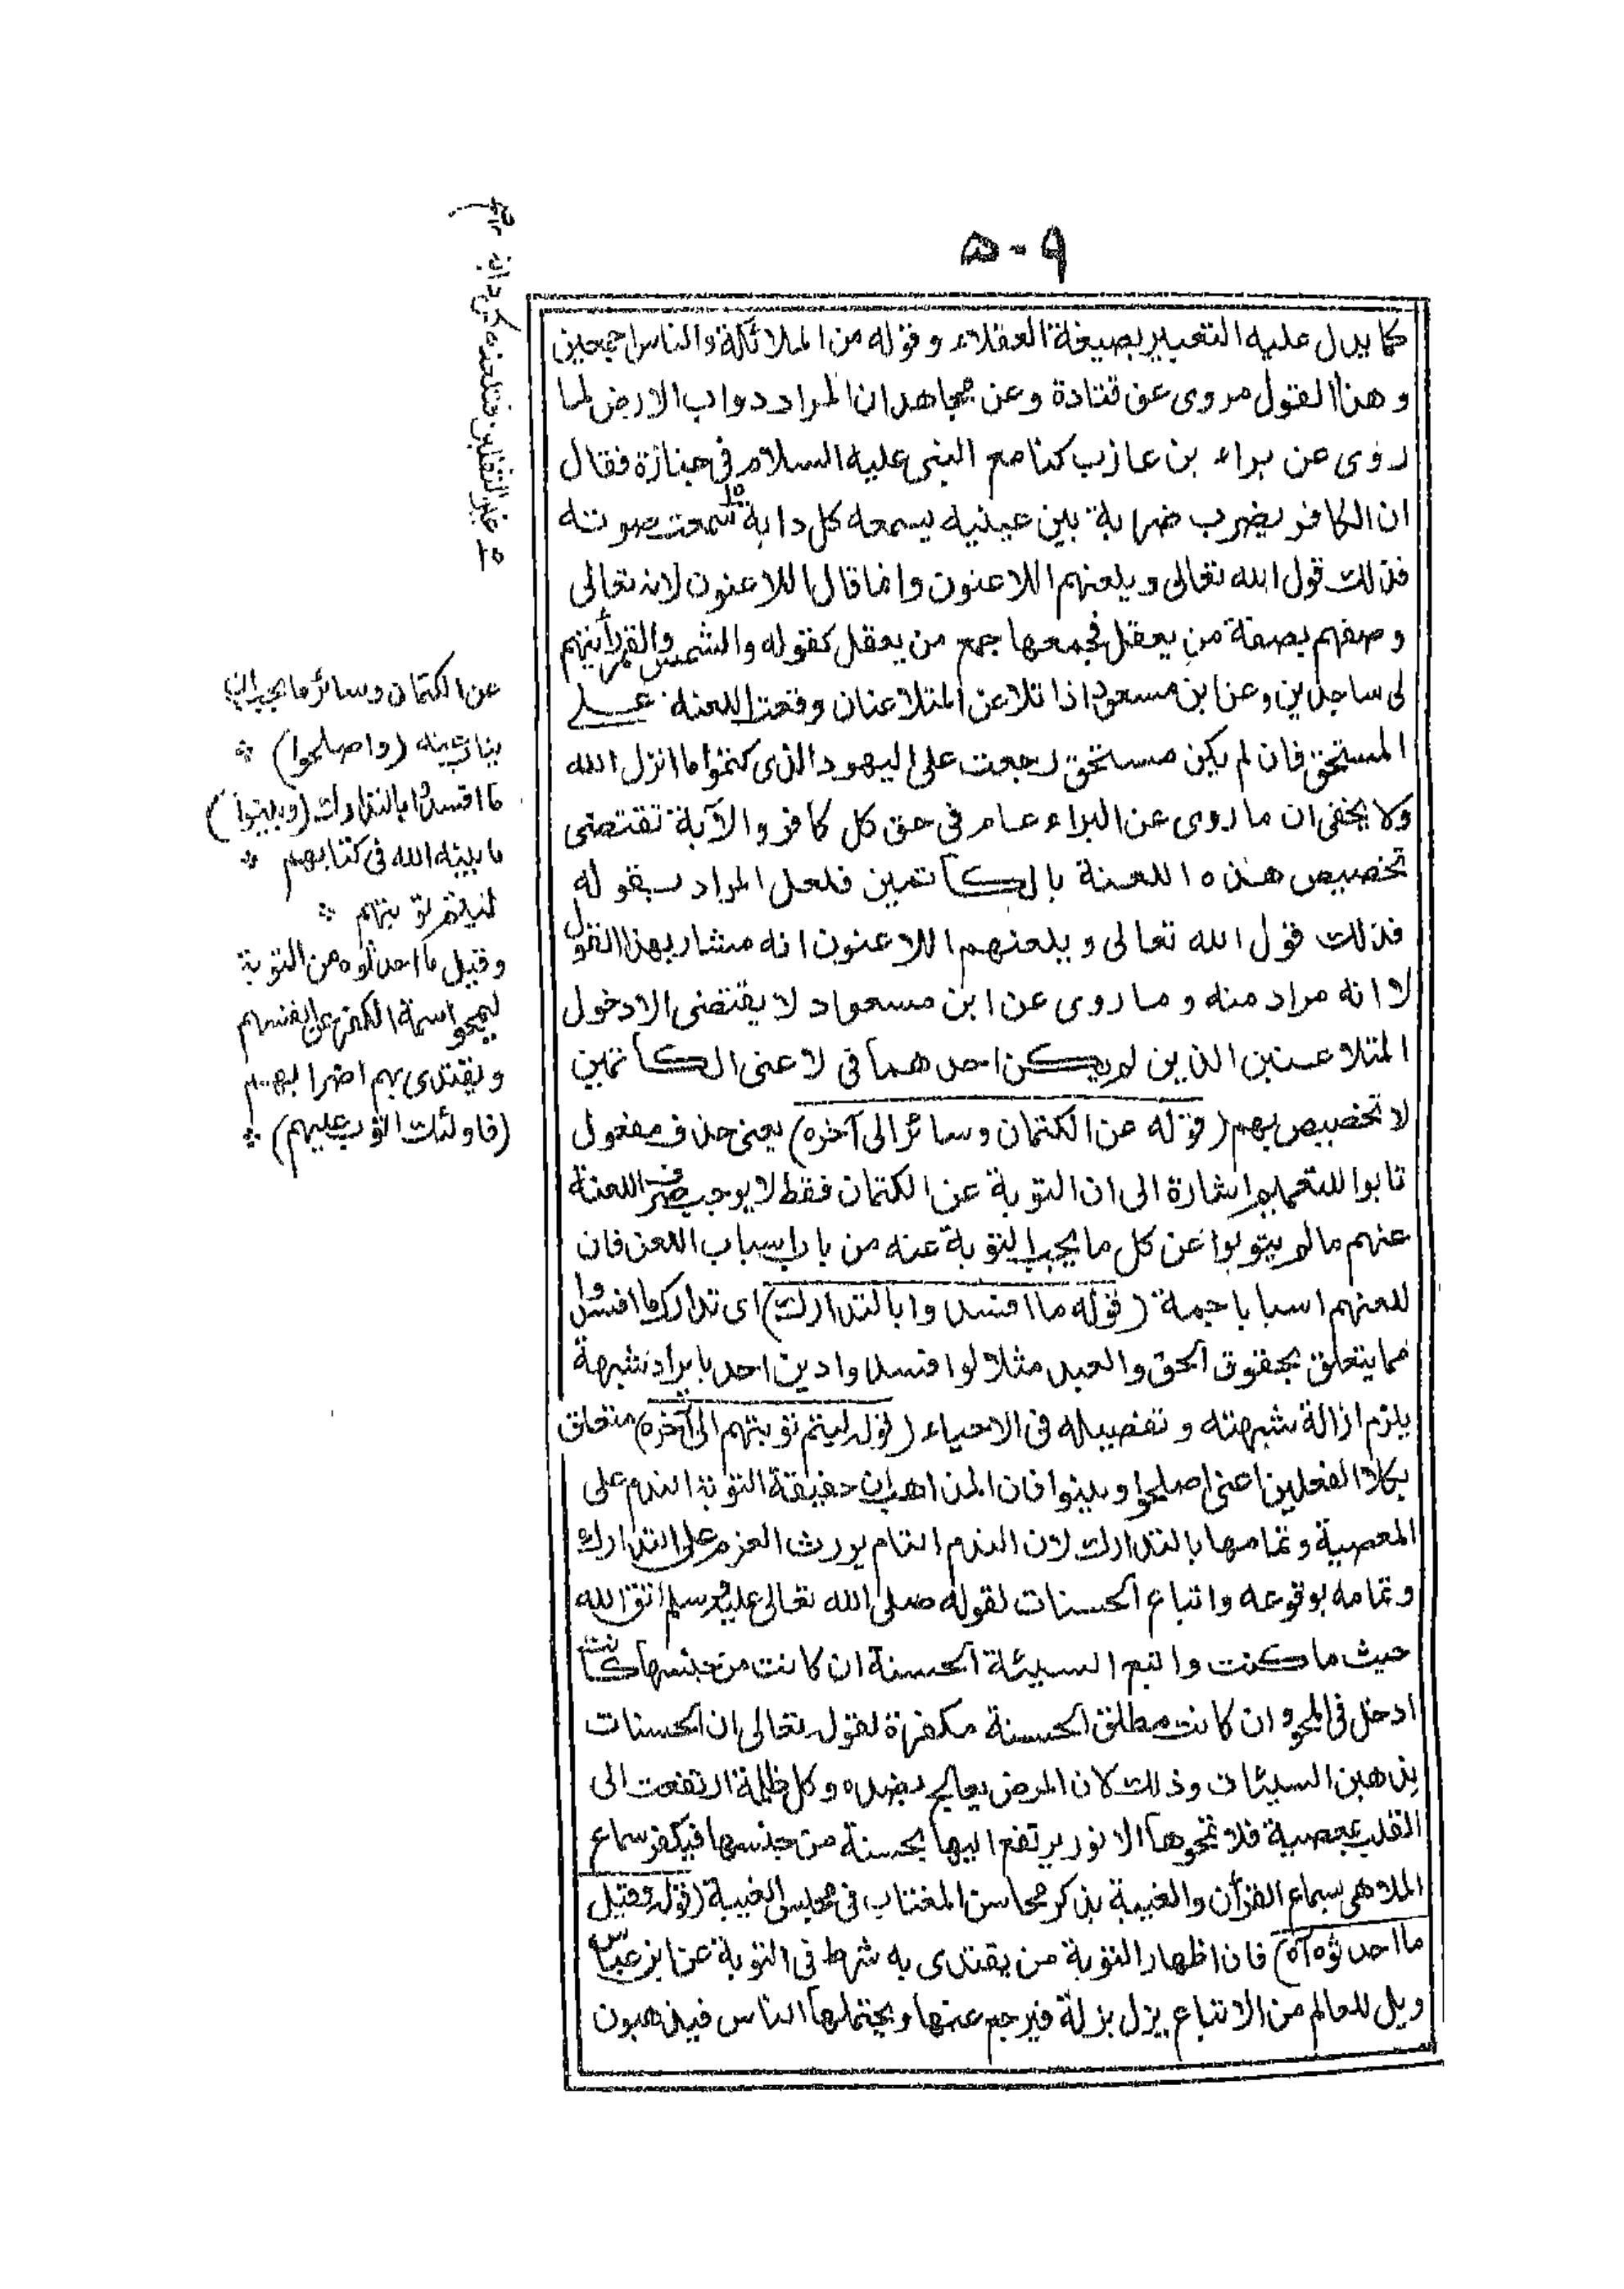 ٥٠٩
كما يدل عليه التعبير بصيغة العقلاء وقوله من الملائكة والناس اجمعين
وهذا القول مروى عن قتادة وعن مجاهد ان المراد دواب الارض لما
روى عن براء بن عازب كنا مع النبى عليه السلام فى جنازة فقال
ان الكافر يضرب ضربة بين عينيه يسمعه كل دابة سمعت صوته
فذلك قول الله تعالى ويلعنهم اللاعنون وانما قال اللاعنون لانه تعالى
وصفهم بصفة من يعقل فجمعها جمع من يعقل كقوله والشمس والقمر رأيتهم
لى ساجدين وعن ابن مسعود اذا تلاعن المتلاعنان وقعت اللعنة على
المستحق فان لم يكن مستحق رجعت على اليهود الذى كتموا ما انزل الله
ولا يخفى ان ما روى عن البراء عام فى حق كل كافر والآية تقتضى
تخصيص هذه اللعنة بالكاتمين فلعل المراد بقوله
فذلك قول الله تعالى ويلعنهم اللاعنون انه مشار بهذا القول
لا انه مراد منه وما روى عن ابن مسعود لا يقتضى الا دخول
المتلاعنين الذين لم يكن احدهما فى لاعنى الكاتمين
لا تخصيص بهم (قوله عن الكتمان وسائر الى آخره) يعنى حذف مفعول
تابوا للتعميم اشارة الى ان التوبة عن الكتمان فقط لا يوجب صرف اللعنة
عنهم ما لم يتوبوا عن كل ما يجب التوبة عنه من باب اسباب اللعن فان
للعنهم اسبابا جمة (قوله ما افسدوا بالتدارك) اى تدارك ما افسدوا
مما يتعلق بحقوق الحق والعبد مثلا لو افسدوا دين احد بايراد شبهة
يلزم ازالة شبهته وتفصيله فى الاحياء (قوله ليتم توبتهم الى آخره) متعلق
بكلا الفعلين اعنى اصلحوا وبينوا فان المذاهب ان حقيقة التوبة الندم على
المعصية وتمامها بالتدارك لان الندم التام يورث العزم على التدارك
وتمامه بوقوعه واتباع الحسنات لقوله صلى الله تعالى عليه وسلم اتق الله
حيث ما كنت واتبع السيئة الحسنة ان كانت من جنسها كانت
ادخل فى المحو وان كانت مطلق الحسنة مكفرة لقوله تعالى ان الحسنات
يذهبن السيئات وذلك لان المرض يعالج بضده وكل ظلمة ارتفعت الى
القلب بمعصية فلا تمحوها الا نور يرتفع اليها بحسنة من جنسها فيكفر سماع
الملاهى بسماع القرآن والغيبة بذكر محاسن المغتاب فى مجلس الغيبة (قوله وقيل
ما احدثوه آه) فان اظهار التوبة من يقتدى به شرط فى التوبة عن ابن عباس
ويل للعالم من الاتباع يزل بزلة فيرجع عنها ويحتملها الناس فيذهبون
عن الكتمان وسائر ما يجب ان
يتاب عنه (واصلحوا)
ما افسدوا بالتدارك (وبينوا)
ما بينه الله فى كتابهم
ليتم توبتهم
وقيل ما احدثوه من التوبة
ليمحوا سمة الكفر عن انفسهم
ويقتدى بهم اضرابهم
(فاولئك اتوب عليهم)
غير الثقلين فتلعنه